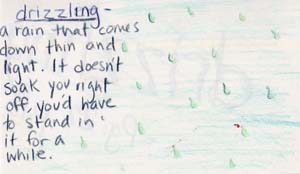 drizzling -
a rain that comes
down thin and
light. It doesn't
soak you right
off, you'd have
to stand in
it for a
while.